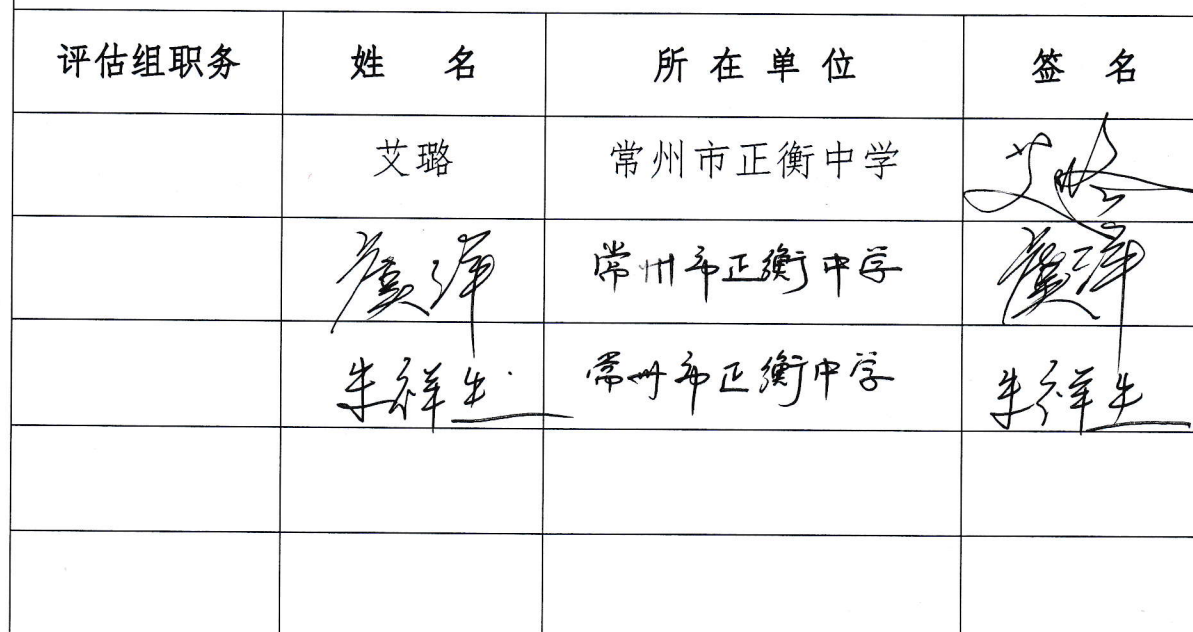 评估组职务 姓 名 所在单位 签 名
艾璐 常州市正衡中学 艾璐
虞泽 常州市正衡中学 虞泽
朱祥生 常州市正衡中学 朱祥生